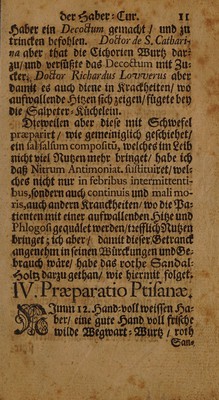 der Haber-Cur. 11
Haber ein Decoctum gemacht/ und zu
trincken befohlen. Doctor de S. Cathari-
na aber that die Cichorien Wurtz dar-
zu/ und versüßte das Decoctum mit Zu-
cker; Doctor Richardus Lovverus aber
damit es auch diene in Kranckheiten/ wo
aufwallende Hitzen sich zeigen/ fügete bey
die Salpeter-Küchelein.
Dieweilen aber diese mit Schwefel
præparirt/ wie gemeiniglich geschiehet/
ein sal salsum compositũ, welches im Leib
nicht viel Nutzen mehr bringet/ habe ich
daß Nitrum Antimoniat. substituiret/ wel-
ches nicht nur in febribus intermittenti-
bus, sondern auch continuis und mali mo-
ris, auch andern Kranckheiten/ wo die Pa-
tienten mit einer aufwallenden Hitze und
Phlogosi gequälet werden/ trefflich Nutzen
bringet; ich aber/ damit dieser Getranck
angenehm in seinen Würckungen und Ge-
brauch wäre/ habe das rothe Sandal-
Holtz darzu gethan/ wie hiermit folget.
IV. Præparatio Ptisanæ.
Nimm 12. Hand-voll weissen Ha-
ber/ eine gute Hand voll frische
wilde Wegwart-Wurtz/ roth
San-